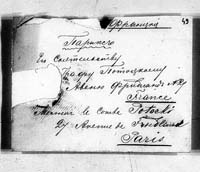 Франція
49
Парижъ
Его Сіятельству
Графу Потоцкому
Авеню Фридландъ №27
France
Monsieur le Comte Potocki
27 Avenue de Friedland
Paris